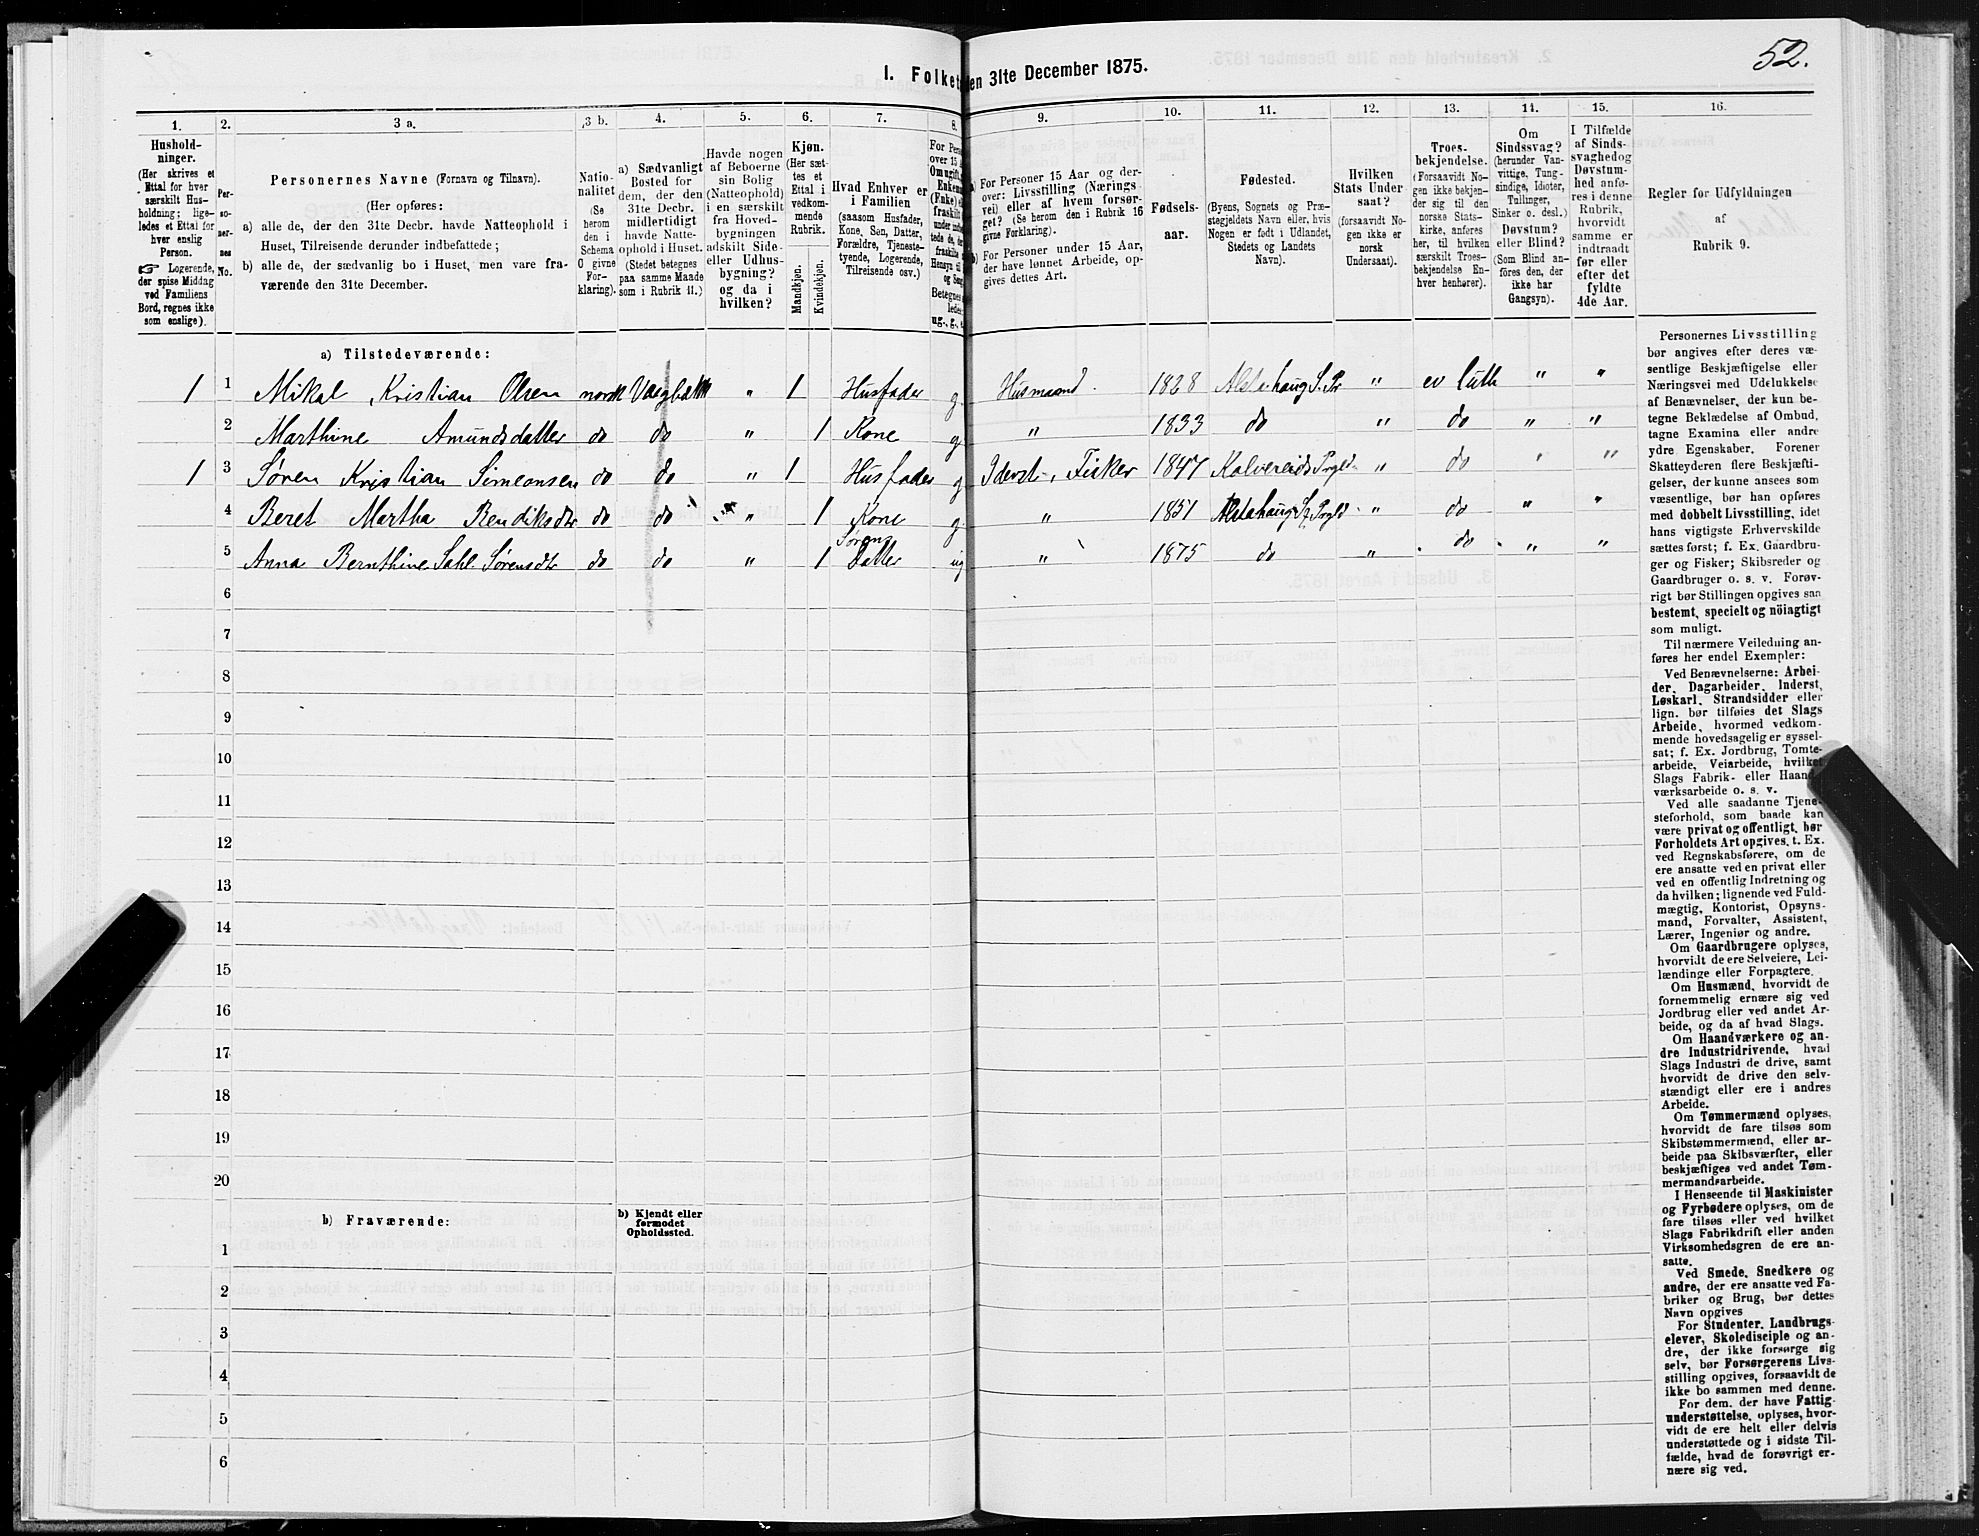 52.
I. Folket
en 31te December 1875.
1. 2. 3 a. 3 b. 4. 5. 6. 7. 8. 9. 10. 11. 12. 13. 14. 15. 16.
Hushold-
ninger.
(Her skrives et
Ettal for hver
særskilt Hus-
holdning; lige-
ledes et Ettal for
hver enslig
Person.
☞ Logerende,
der spise Middag
ved Familiens
Bord, regnes ikke
som enslige).
Per-
so-
ner-
nes
No.
Personernes Navne (Fornavn og Tilnavn).
(Her opføres:
a) alle de, der den 31te Decbr. havde Natteophold i
Huset, Tilreisende derunder indbefattede;
b) alle de, der sædvanlig bo i Huset, men vare fra-
værende den 31te December.
Natio-
nalitet
(Se
herom
den i
Schema
O givne
For-
klaring).
a) Sædvanligt
Bosted for
dem, der den
31te Decbr.
midlertidigt
havde Natte-
ophold i Huset.
(Stedet betegnes
paa samme Maade
som i Rubrik 11.)
Havde nogen
af Beboerne
sin Bolig
(Natteophold)
i en særskilt
fra Hoved-
bygningen
adskilt Side-
eller Udhus-
bygning?
og da i
hvilken?
Kjøn.
(Her sæt-
tes et
Ettal i
vedkom-
mende
Rubrik.
Mandkjøn.
Kvindekjøn.
Hvad Enhver er
i Familien
(saasom Husfader,
Kone, Søn, Datter,
Forældre, Tjeneste-
tyende, Logerende,
Tilreisende osv.)
For Pers
over 15 A
Om ugift,
Enkema
(Enke) el
fraskilt
ug., g., e
a) For Personer 15 Aar og der-
over: Livsstilling (Nærings-
vei) eller af hvem forsør-
get? (Se herom den i Rubrik 16
givne Forklaring).
b) For Personer under 15 Aar,
der have lønnet Arbeide, op-
gives dettes Art.
Fødsels-
aar.
Fødested.
(Byens, Sognets og Præ-
stegjeldets Navn eller, hvis
Nogen er født i Udlandet,
Stedets og Landets
Navn).
Hvilken
Stats Under-
saat?
(forsaavidt No-
gen ikke er
norsk
Undersaat).
Troes-
bekjendelse.
(Forsaavidt No-
gen ikke bekjen-
der sig til den
norske Stats-
kirke, anføres
her, til hvilken
særskilt Troes-
bekjendelse En-
hver henhører).
Om
Sindssvag?
(herunder Van-
vittige, Tung-
sindige, Idioter,
Tullinger,
Sinker o. desl.)
Døvstum?
eller Blind?
(Som Blind an-
føres den, der
ikke har
Gangsyn).
I Tilfælde
af Sinds-
svaghed og
Døvstum-
hed anfø-
res i denne
Rubrik,
hvorvidt
samme er
indtraadt
før eller
efter det
fyldte
4de Aar.
Regler for Udfyldningen
af
Rubrik 9.
a) Tilstedeværende:
1 1 Mikal Kristian Olsen norsk " 1 Husfader g. Husmand. 1828 Alstahaug S. Pr " ev luth " "
2 Marthine Amundsdatter do do " 1 Kone g " 1833 do " do " "
1 3 Søren Kristian Simeonsen do do " 1 Husfader g Inderst, Fisker 1847 " do " "
4 Beret Martha Bendiksdtr do do " 1 Kone g. " 1851 Alstahaug S Prgld " do " "
5 Anna Bernthine Sørensdtr do do " 1 Sørens Datter ug " 1875 do " do " "
6
7
8
9
10
11
12
13
14
15
16
17
18
19
20
b) Fraværende:
b) Kjendt eller
formodet
Opholdssted.
1
2
3
4
5
6
Personernes Livsstilling
bør angives efter deres væ-
sentlige Beskjæftigelse eller
Næringsvei med Udelukkelse
af Benævnelser, der kun be-
tegne Beklædelse af Ombud,
tagne Examina eller andre
ydre Egenskaber. Forener
Skatteyderen flere Beskjæfti-
gelser, der kunne ansees som
væsentlige, bør han opføres
med dobbelt Livsstilling, idet
hans vigtigste Erhvervskilde
sættes først; f. Ex. Gaardbru-
ger og Fisker; Skibsreder og
Gaardbruger o. s. v. Forøv-
rigt bør Stillingen opgives saa
bestemt, specielt og nöiagtigt
som muligt.
Til nærmere Veiledning an-
føres her endel Exempler:
Ved Benævnelserne: Arbei-
der, Dagarbeider, Inderst,
Løskarl, Strandsidder eller
lign. bør tilføies det Slags
Arbeide, hvormed vedkom-
mende hovedsagelig er syssel-
sat; f. Ex. Jordbrug, Tomte-
arbeide, Veiarbeide, hvilket
Slags Fabrik- eller Haand-
værksarbeide o. s. v.
Ved alle saadanne Tjene-
steforhold, som baade kan
være privat og offentligt, bør
Forholdets Art opgives, t. Ex.
ved Regnskabsførere, om de
ere ansatte ved en privat eller
ved en offentlig Indretning og
da hvilken; lignende ved Fuld-
mægtig, Kontorist, Opsyns-
mand, Forvalter, Assistent,
Lærer, Ingeniør og andre.
Om Gaardbrugere oplyses,
hvorvidt de ere Selveiere, Lei-
lændinge eller Forpagtere.
Om Husmænd, hvorvidt de
fornemmelig ernære sig ved
Jordbrug eller ved andet Ar-
beide, og da af hvad Slags.
Om Haandværkere og an-
dre Industridrivende, hvad
Slags Industri de drive, samt
hvorvidt de drive den selv-
stændigt eller ere i andres
Arbeide.
Om Tømmermænd oplyses,
hvorvidt de fare tilsøs som
Skibstømmermænd, eller ar-
beide paa Skibsværfter, eller
beskjæftiges ved andet Tøm-
mermandsarbeide.
I Henseende til Maskinister
og Fyrbødere oplyses, om de
fare tilsøs eller ved hvilket
Slags Fabrikdrift eller anden
Virksomhedsgren de ere an-
satte.
Ved Smede, Snedkere og
andre, der ere ansatte ved Fa-
briker og Brug, bør dettes
Navn opgives
For Studenter, Landbrugs-
elever, Skoledisciple og an-
dre, der ikke forsørge sig
selv, bør Forsørgerens Livs-
stilling opgives, forsaavidt de
ikke bo sammen med denne.
For dem, der have Fattig-
understøttelse, oplyses, hvor-
vidt de ere helt eller delvis
understøttede og i sidste Til-
fælde, hvad de forøvrigt er-
nære sig ved.